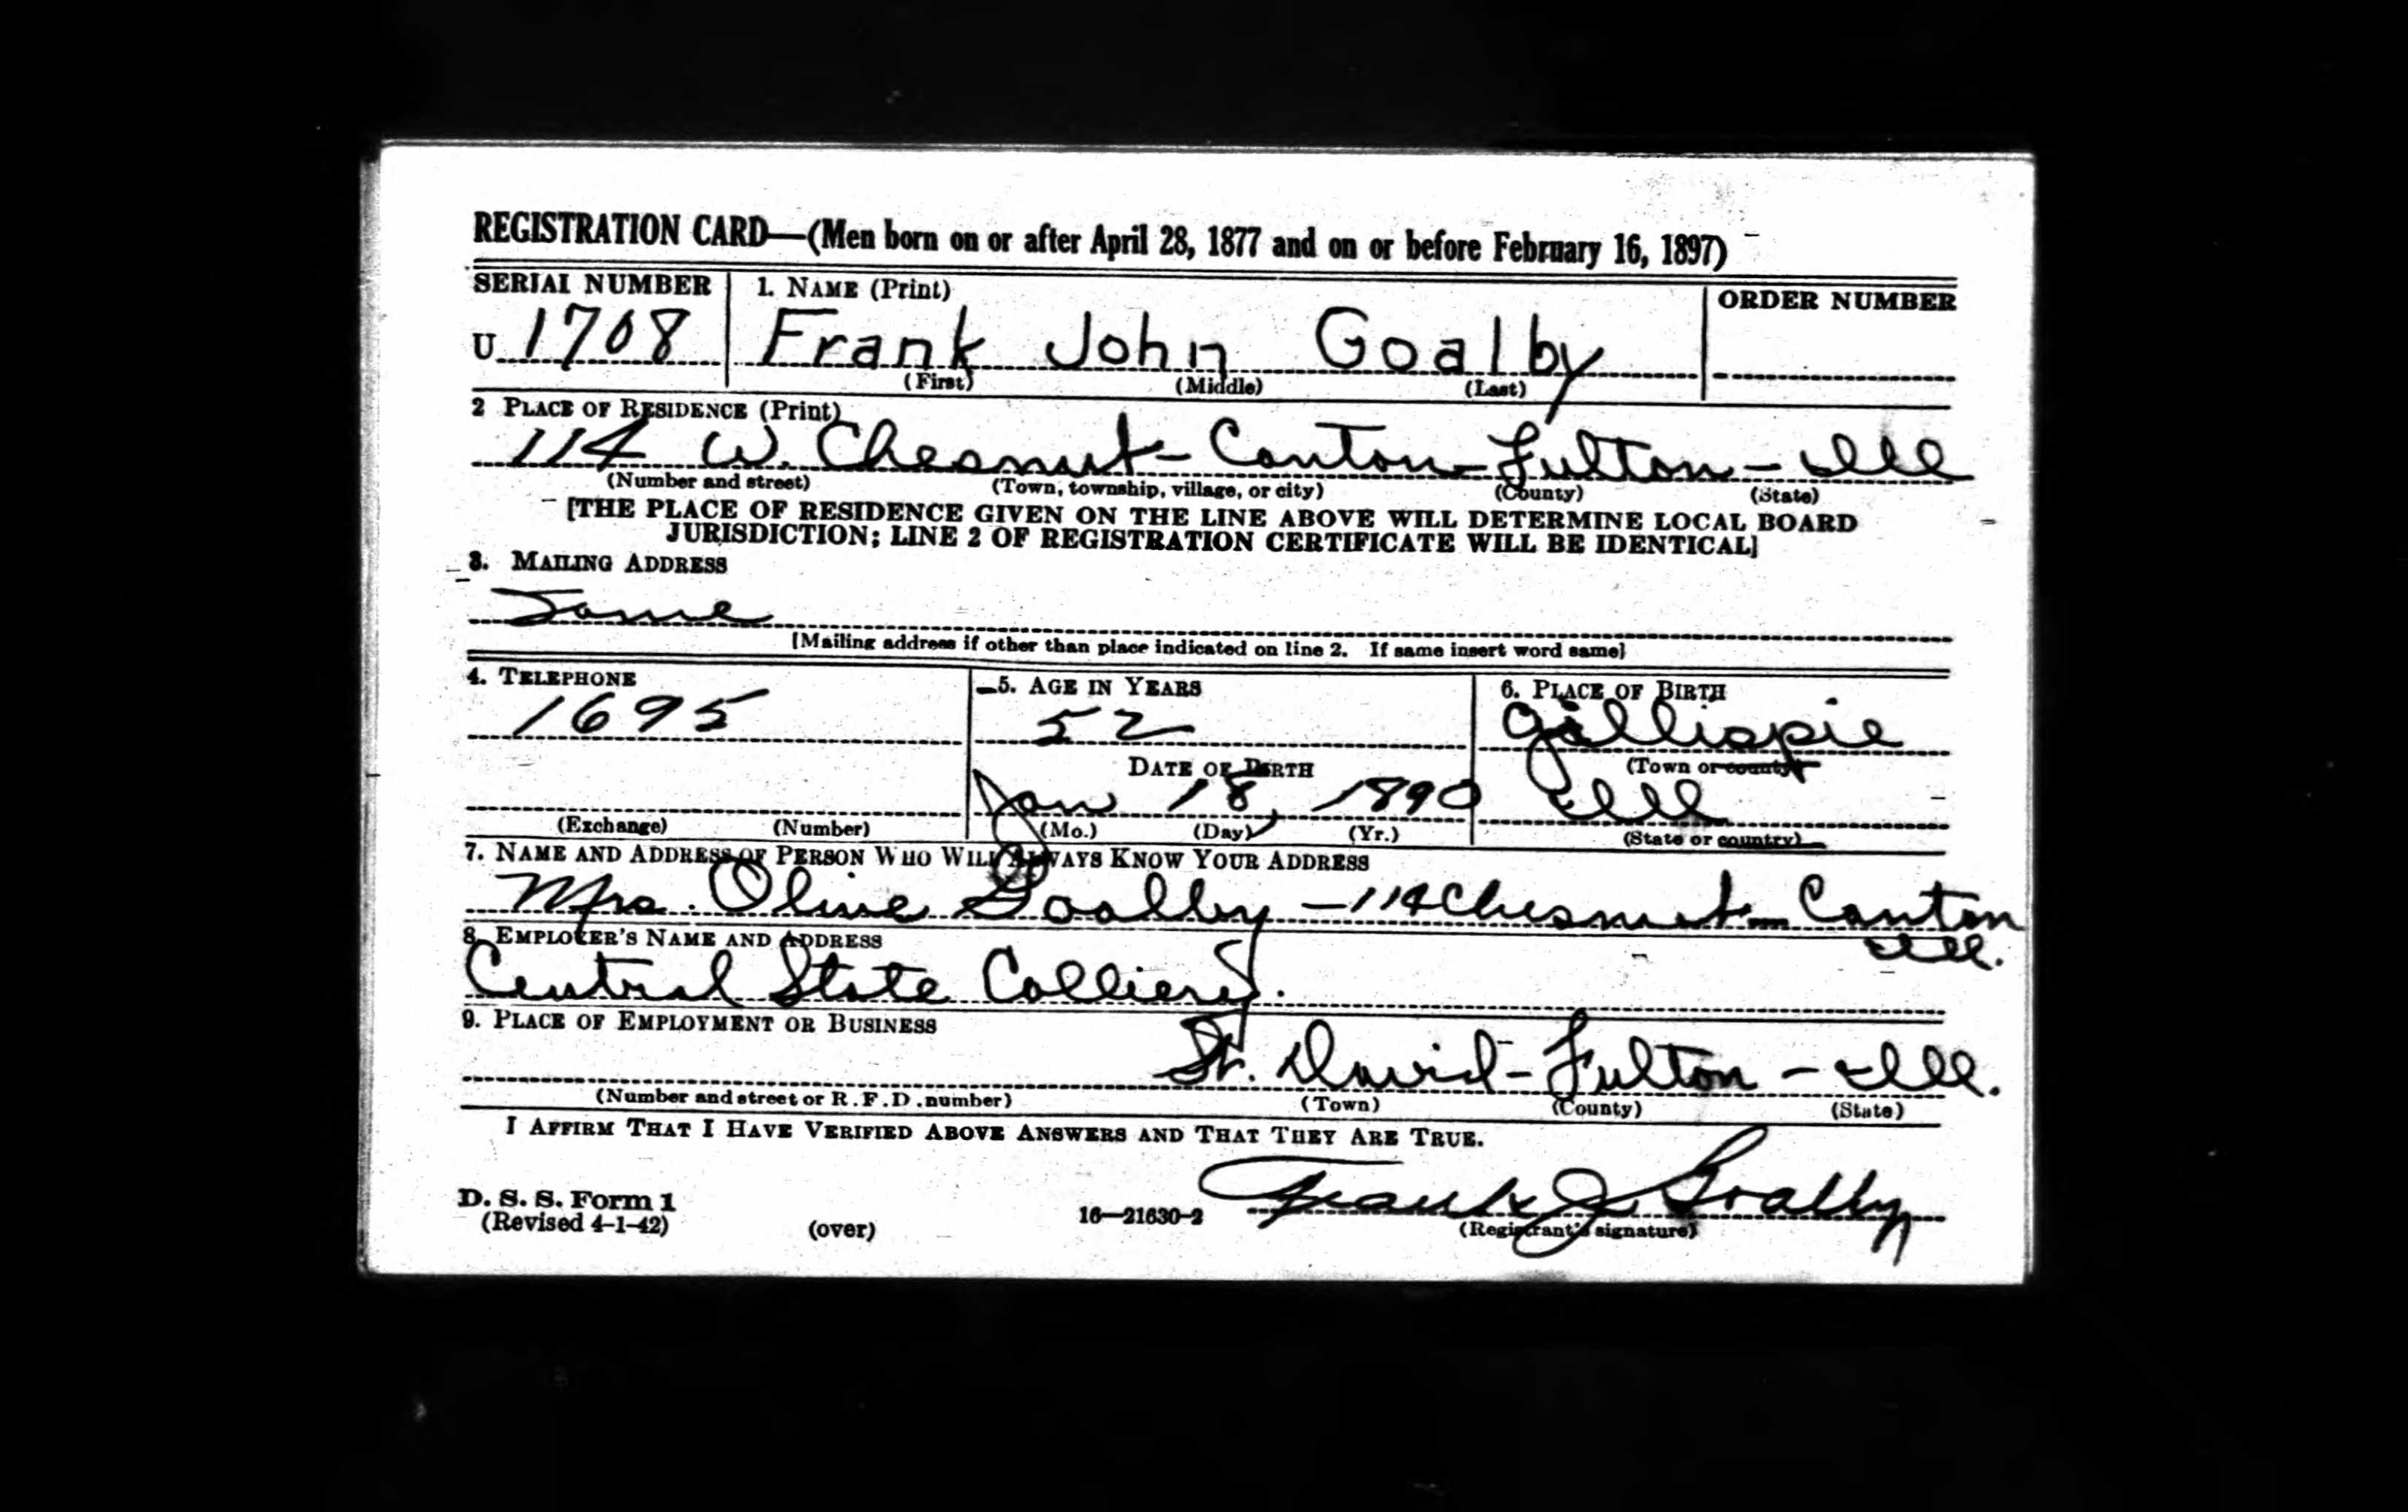 REGISTRATION CARD—(Men born on or after April 28, 1877 and on or before February 16, 1897)
SERIAL NUMBER 1. NAME (Print) ORDER NUMBER
U 1708 Frank John Goalby
(First) (Middle) (Last)
2 PLACE OF RESIDENCE (Print)
114 W. Chesnut - Canton - Fulton - Ill
(Number and street) (Town, township, village, or city) (County) (State)
[THE PLACE OF RESIDENCE GIVEN ON THE LINE ABOVE WILL DETERMINE LOCAL BOARD
JURISDICTION; LINE 2 OF REGISTRATION CERTIFICATE WILL BE IDENTICAL]
3. MAILING ADDRESS
Same
[Mailing address if other than place indicated on line 2. If same insert word same]
4. TELEPHONE 5. AGE IN YEARS 6. PLACE OF BIRTH
1695 52 Gillispie
DATE OF BIRTH (Town or county)
Jan 18, 1890 Ill
(Exchange) (Number) (Mo.) (Day) (Yr.) (State or country)
7. NAME AND ADDRESS OF PERSON WHO WILL ALWAYS KNOW YOUR ADDRESS
Mrs. Olive Goalby - 114 Chesnut - Canton
Ill.
8. EMPLOYER'S NAME AND ADDRESS
Central State Collieries.
9. PLACE OF EMPLOYMENT OR BUSINESS
St. David - Fulton - Ill.
(Number and street or R.F.D. number) (Town) (County) (State)
I AFFIRM THAT I HAVE VERIFIED ABOVE ANSWERS AND THAT THEY ARE TRUE.
Frank J Goalby
D. S. S. Form 1
(Revised 4-1-42) (over) 16—21630-2 (Registrant's signature)